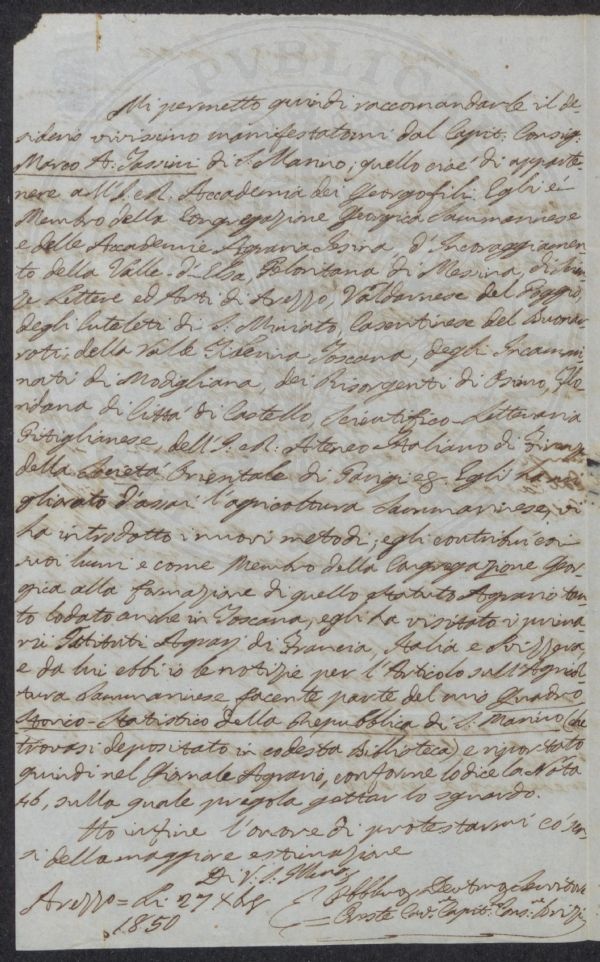 PVBLIC
Mi permetto quindi raccomandarle il de-
siderio vivissimo manifestatomi dal Capit. Consig.
Marco A. Tassini di S. Marino; quello cioè di apparte-
nere all'I. e R. Accademia dei Georgofili. Egli è
Membro della Congregazione Georgica Sammarinese
e delle Accademie Agraria Jesina, d'Incoraggiamen-
to della Valle-d'Elsa, Peloritana di Messina, di Scien-
ze Lettere ed Arti di Arezzo, Valdarnese del Poggio,
degli Euteleti di S. Miniato, Casentinese del Buonar-
roti, della Valle Tiberina Toscana, degli Incammi-
nati di Modigliana, dei Risorgenti di Osimo, Flo-
ridana di Città di Castello, Scientifico-Letteraria
Pitiglianese, dell'I. e R. Ateneo-Italiano di Firenze
della Società Orientale di Parigi Egli ha mi-
gliorato d'assai l'agricoltura Sammarinese, vi
ha introdotto i nuovi metodi; egli contribuì coi
suoi lumi e come Membro della Congregazione Geor-
gica alla formazione di quello Statuto Agrario tan-
to lodato anche in Toscana, egli ha visitato i prima-
rii Istituti Agrarj di Francia, Italia e Svizzera,
e da lui ebbi io le notizie per l'Articolo sull'Agricol-
tura Sammarinese facente parte del mio Quadro
Storico-Statistico della Repubblica di S. Marino (che
trovasi depositato in codesta Biblioteca) e riportato
quindi nel Giornale Agrario, conforme lo dice la Nota
sulla quale pregola gettar lo sguardo.
Ho infine l'onore di protestarmi co' sen-
si della maggiore estimazione
Di V. S. Illma
Arezzo = Li 27 Xbre
1850
Obbligmo Devotmo Servitore
Oreste Cav. Capit. Cons. Brizi